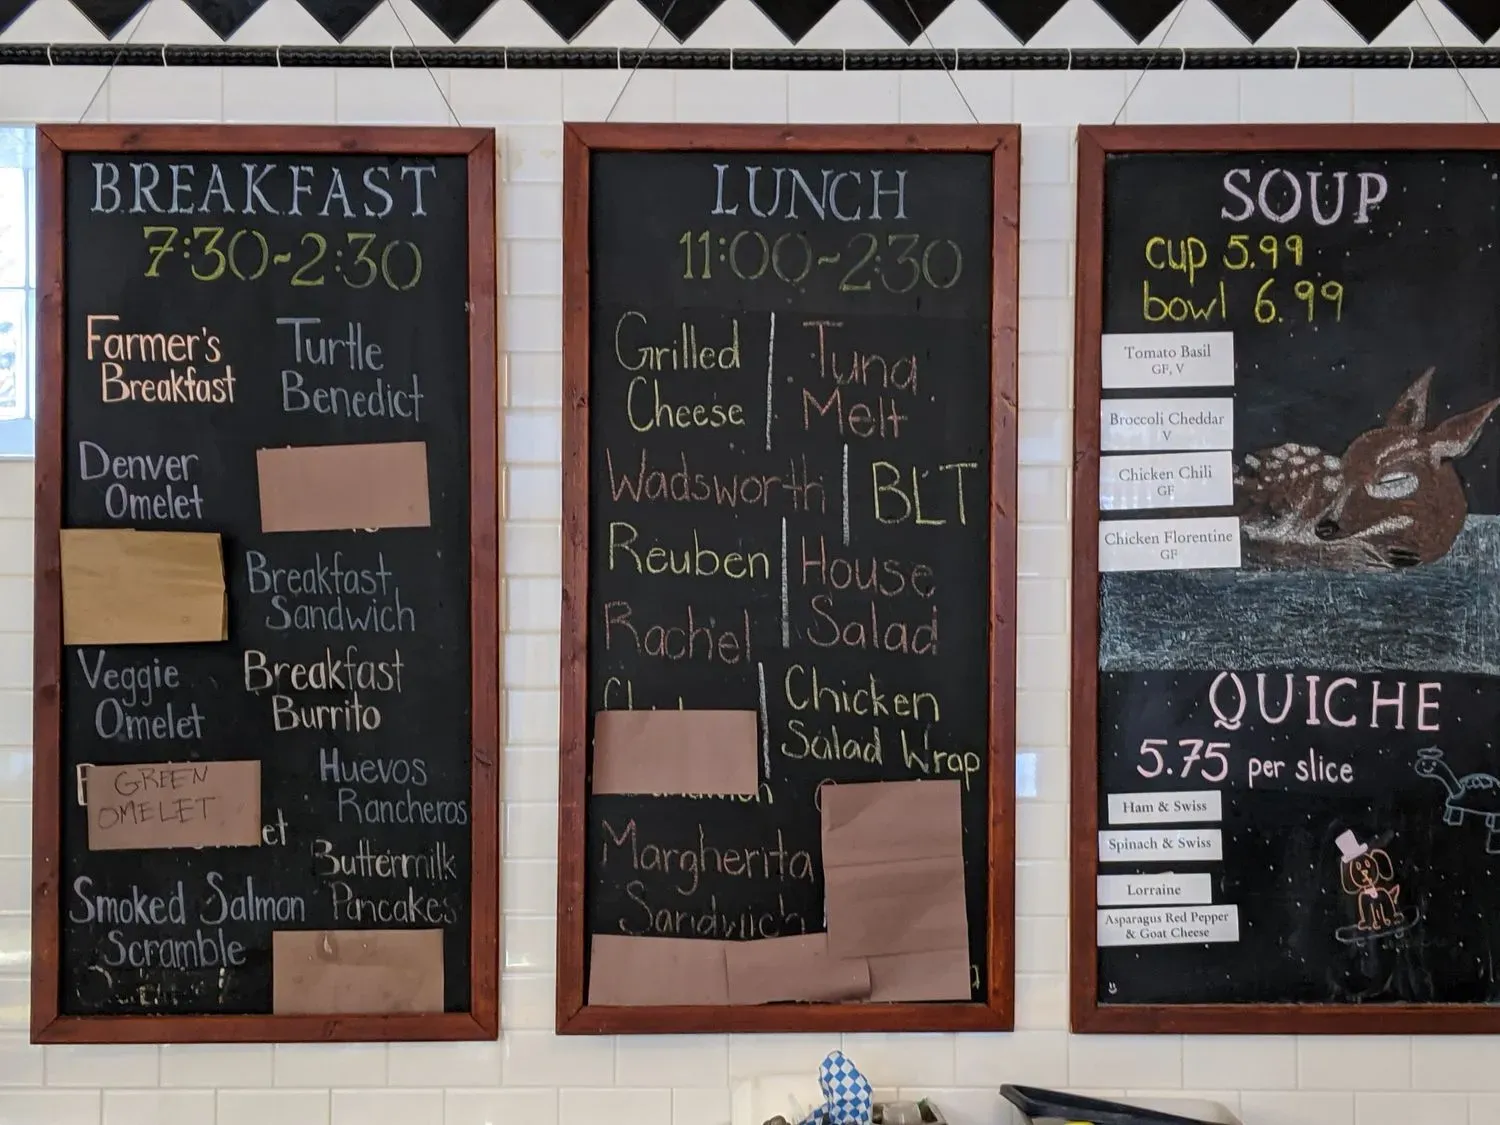 BREAKFAST
7:30-2:30
Farmer's
Breakfast
Turtle
Benedict
Denver
Omelet
Breakfast
Sandwich
Veggie
Omelet
Breakfast
Burrito
GREEN
OMELET
et
Huevos
Rancheros
Buttermilk
Pancakes
Smoked Salmon
Scramble
LUNCH
11:00-2:30
Grilled
Cheese
Tuna
Melt
Wadsworth
BLT
Reuben
House
Salad
Rachel
Chicken
Salad Wrap
Margherita
Sandwich
SOUP
cup 5.99
bowl 6.99
Tomato Basil
GF, V
Broccoli Cheddar
V
Chicken Chili
GF
Chicken Florentine
GF
QUICHE
5.75 per slice
Ham & Swiss
Spinach & Swiss
Lorraine
Asparagus Red Pepper
& Goat Cheese